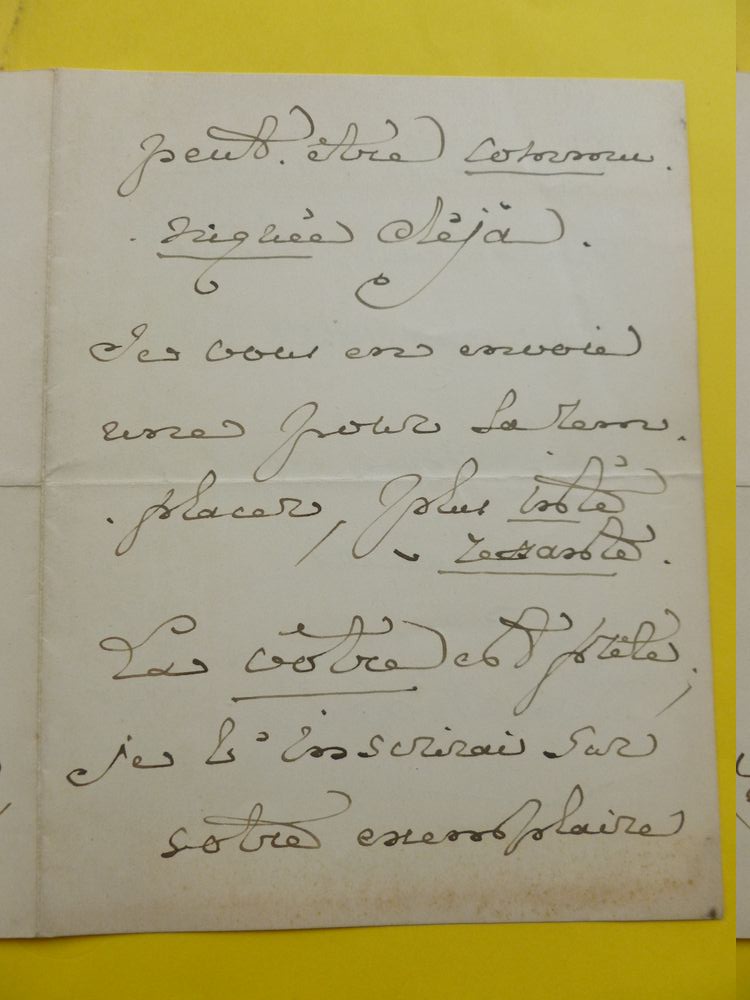 peut. être commu.
. niquée déjà.
Je vous en envoie
une pour la rem.
. placer, plus inté
ressante.
La vôtre est prête,
je l'inscrirai sur
votre exemplaire